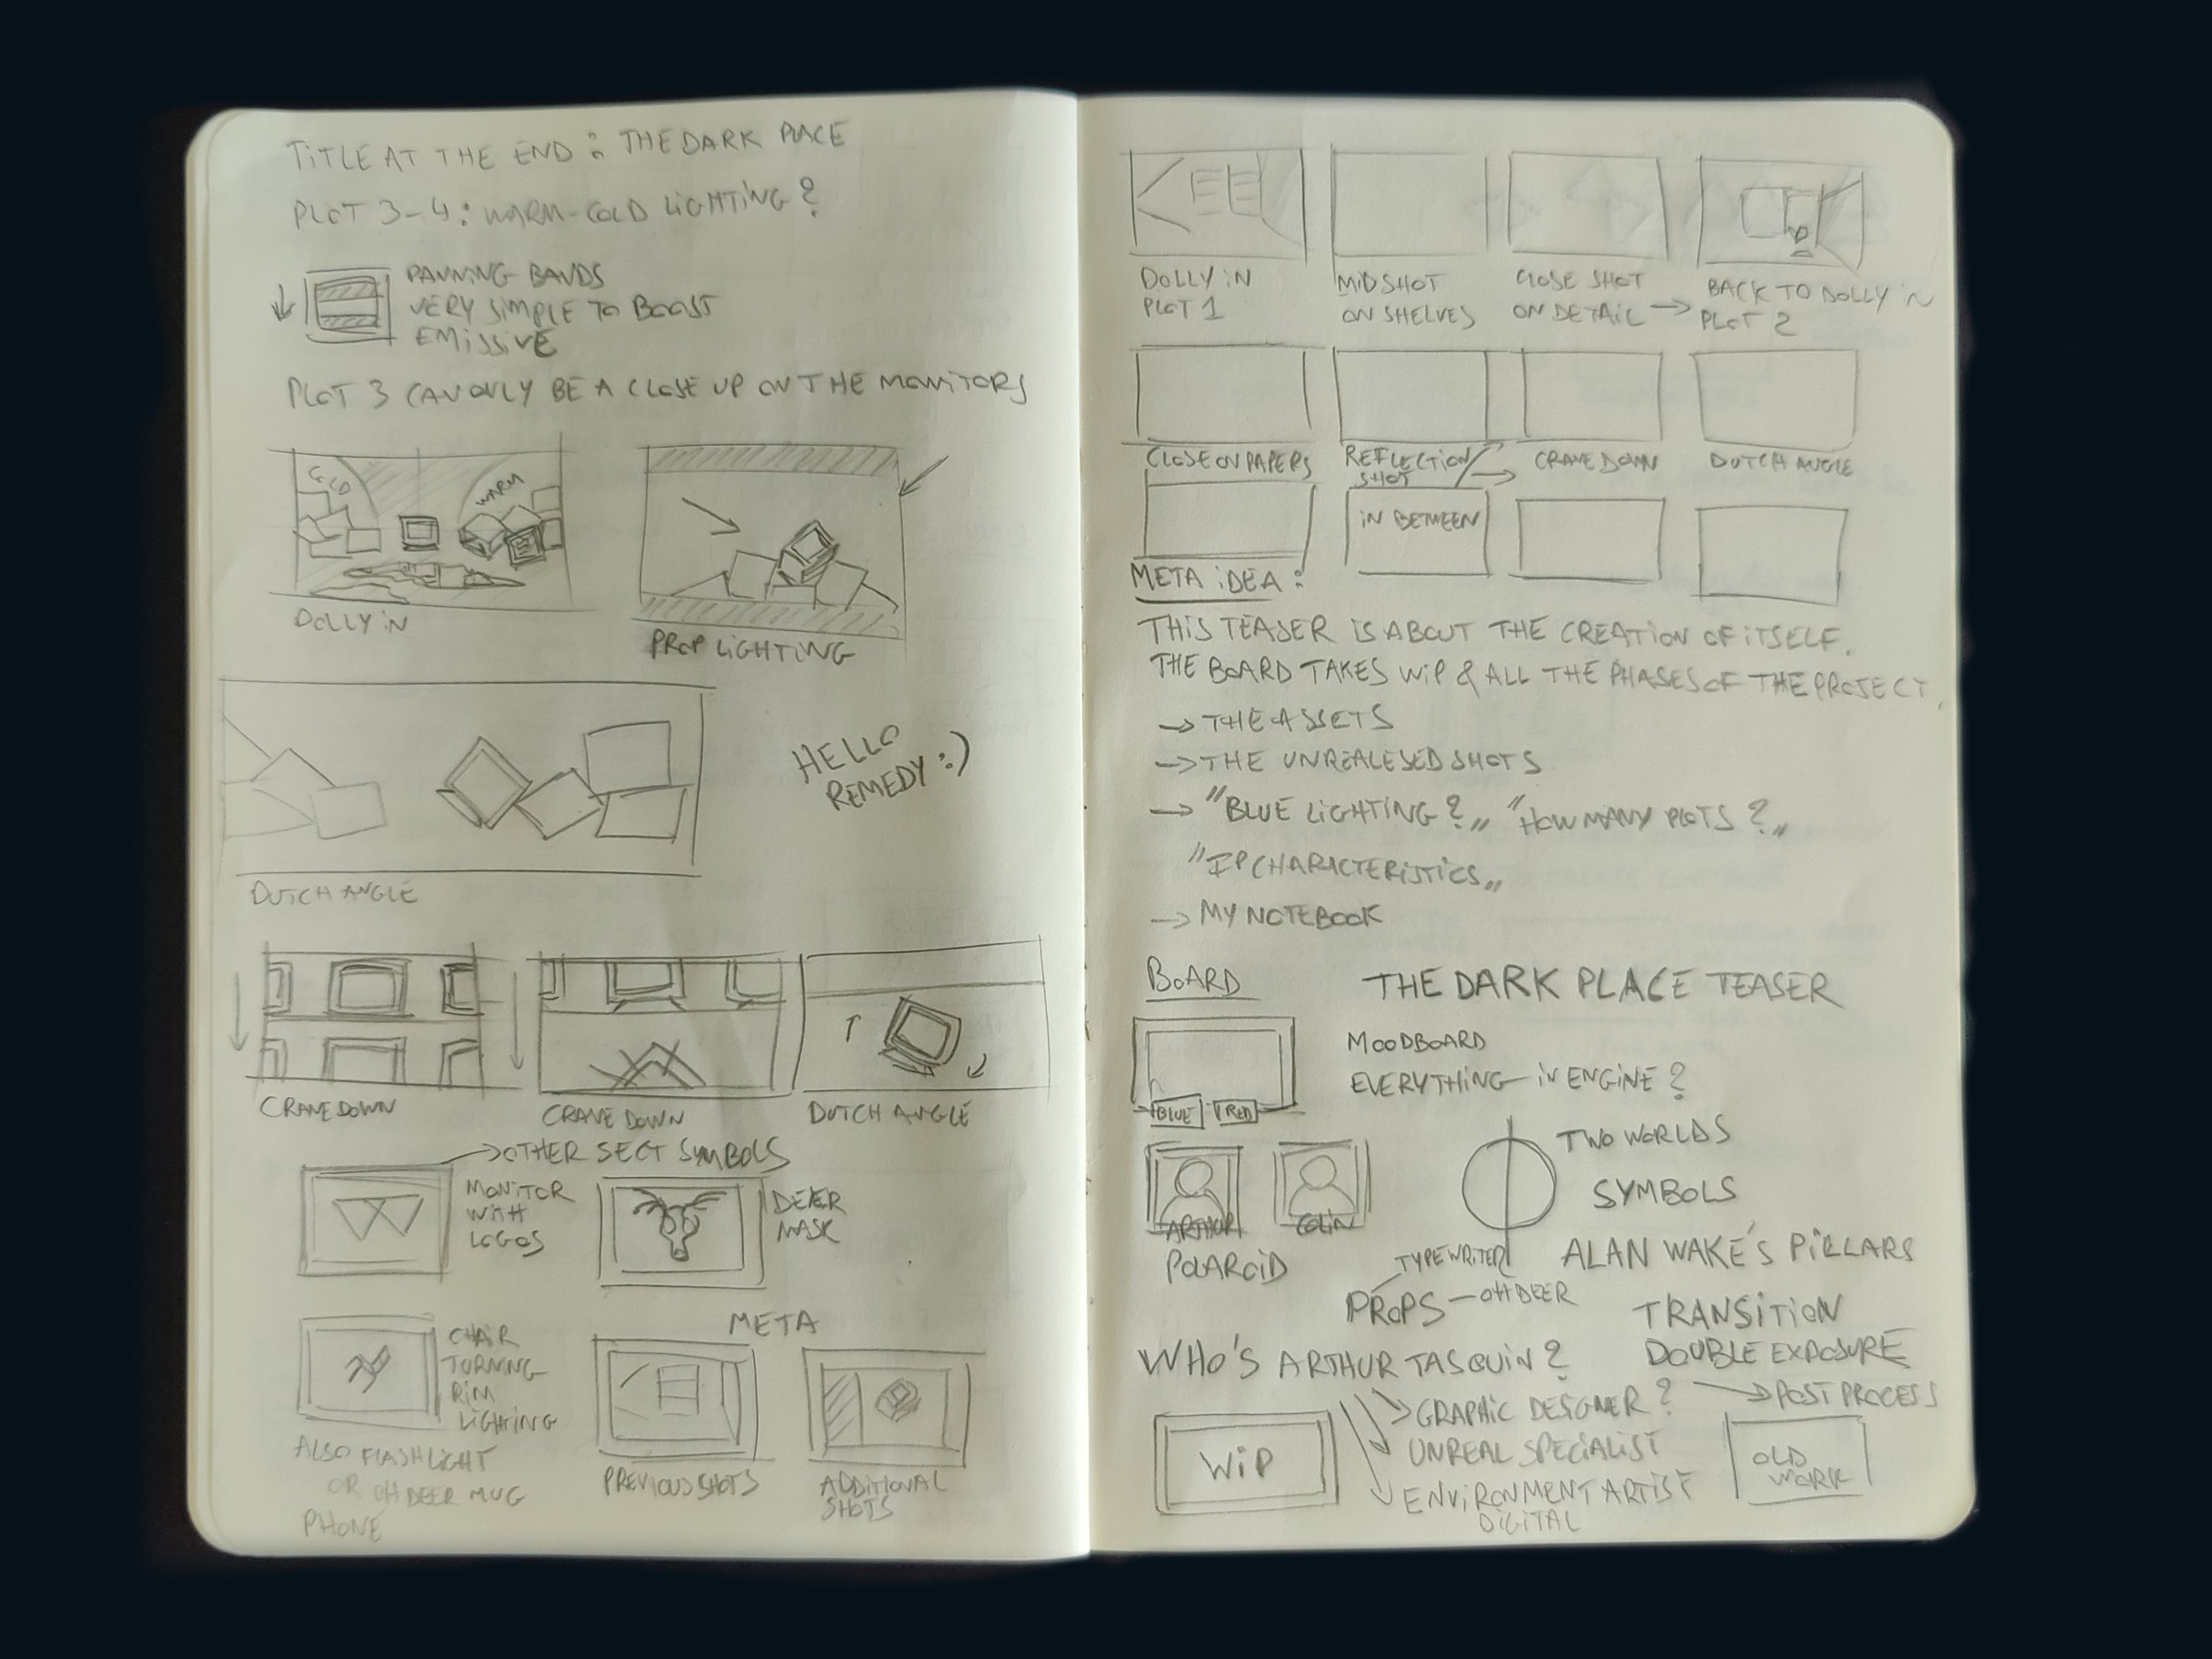 TITLE AT THE END : THE DARK PLACE
PLOT 3-4 : WARM-COLD LIGHTING ?
PANNING BANDS
VERY SIMPLE TO BOOST
EMISSIVE
PLOT 3 CAN ONLY BE A CLOSE UP ON THE MONITORS
COLD
WARM
DOLLY IN
PROP LIGHTING
HELLO
REMEDY :)
DUTCH ANGLE
CRANE DOWN
CRANE DOWN
DUTCH ANGLE
→ OTHER SECT SYMBOLS
MONITOR
WITH
LOGOS
DEER
MASK
CHAIR
TURNING
RIM
LIGHTING
ALSO FLASHLIGHT
OR OH DEER MUG
PHONE
META
PREVIOUS SHOTS
ADDITIONAL
SHOTS
DOLLY IN
PLOT 1
MID SHOT
ON SHELVES
CLOSE SHOT
ON DETAIL →
BACK TO DOLLY IN
PLOT 2
CLOSE ON PAPERS
REFLECTION
SHOT
CRANE DOWN
DUTCH ANGLE
IN BETWEEN
META IDEA :
THIS TEASER IS ABOUT THE CREATION OF ITSELF.
THE BOARD TAKES WIP & ALL THE PHASES OF THE PROJECT.
→ THE ASSETS
→ THE UNREALESED SHOTS
→ "BLUE LIGHTING ?" "HOW MANY PLOTS ?"
"IP CHARACTERISTICS"
→ MY NOTEBOOK
BOARD
THE DARK PLACE TEASER
BLUE
RED
MOODBOARD
EVERYTHING IN ENGINE ?
ARTHUR
COLIN
POLAROID
TWO WORLDS
SYMBOLS
ALAN WAKE'S PILLARS
TYPEWRITER
PROPS - OH DEER
TRANSITION
DOUBLE EXPOSURE
→ POST PROCESS
WHO'S ARTHUR TASQUIN ?
GRAPHIC DESIGNER ?
UNREAL SPECIALIST
ENVIRONMENT ARTIST
DIGITAL
WIP
OLD
WORK